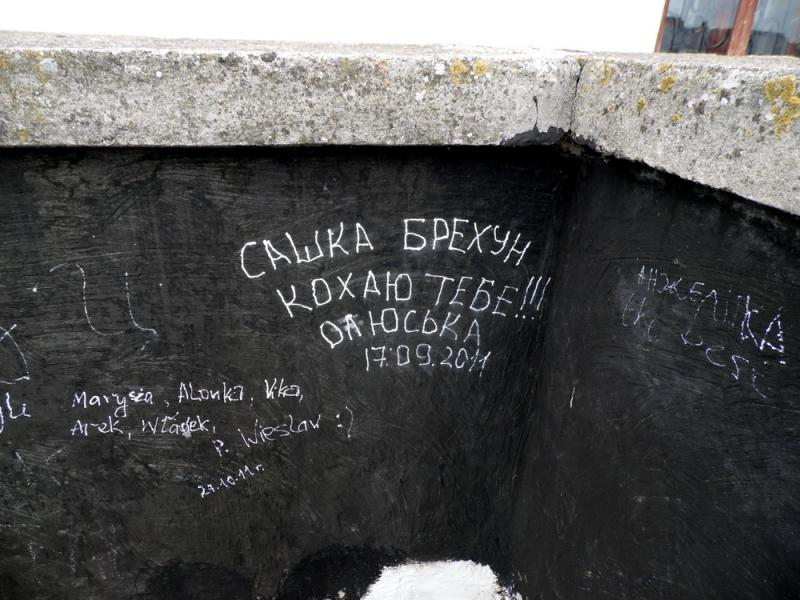 САШКА БРЕХУН
КОХАЮ ТЕБЕ!!!
ОЛЮСЬКА
17.09.2011
Ц
Marysia, Alonka, Vika,
Arek, Władek,
P. Wiesław :)
27.10.11 r.
АНЖЕЛІКА
the best